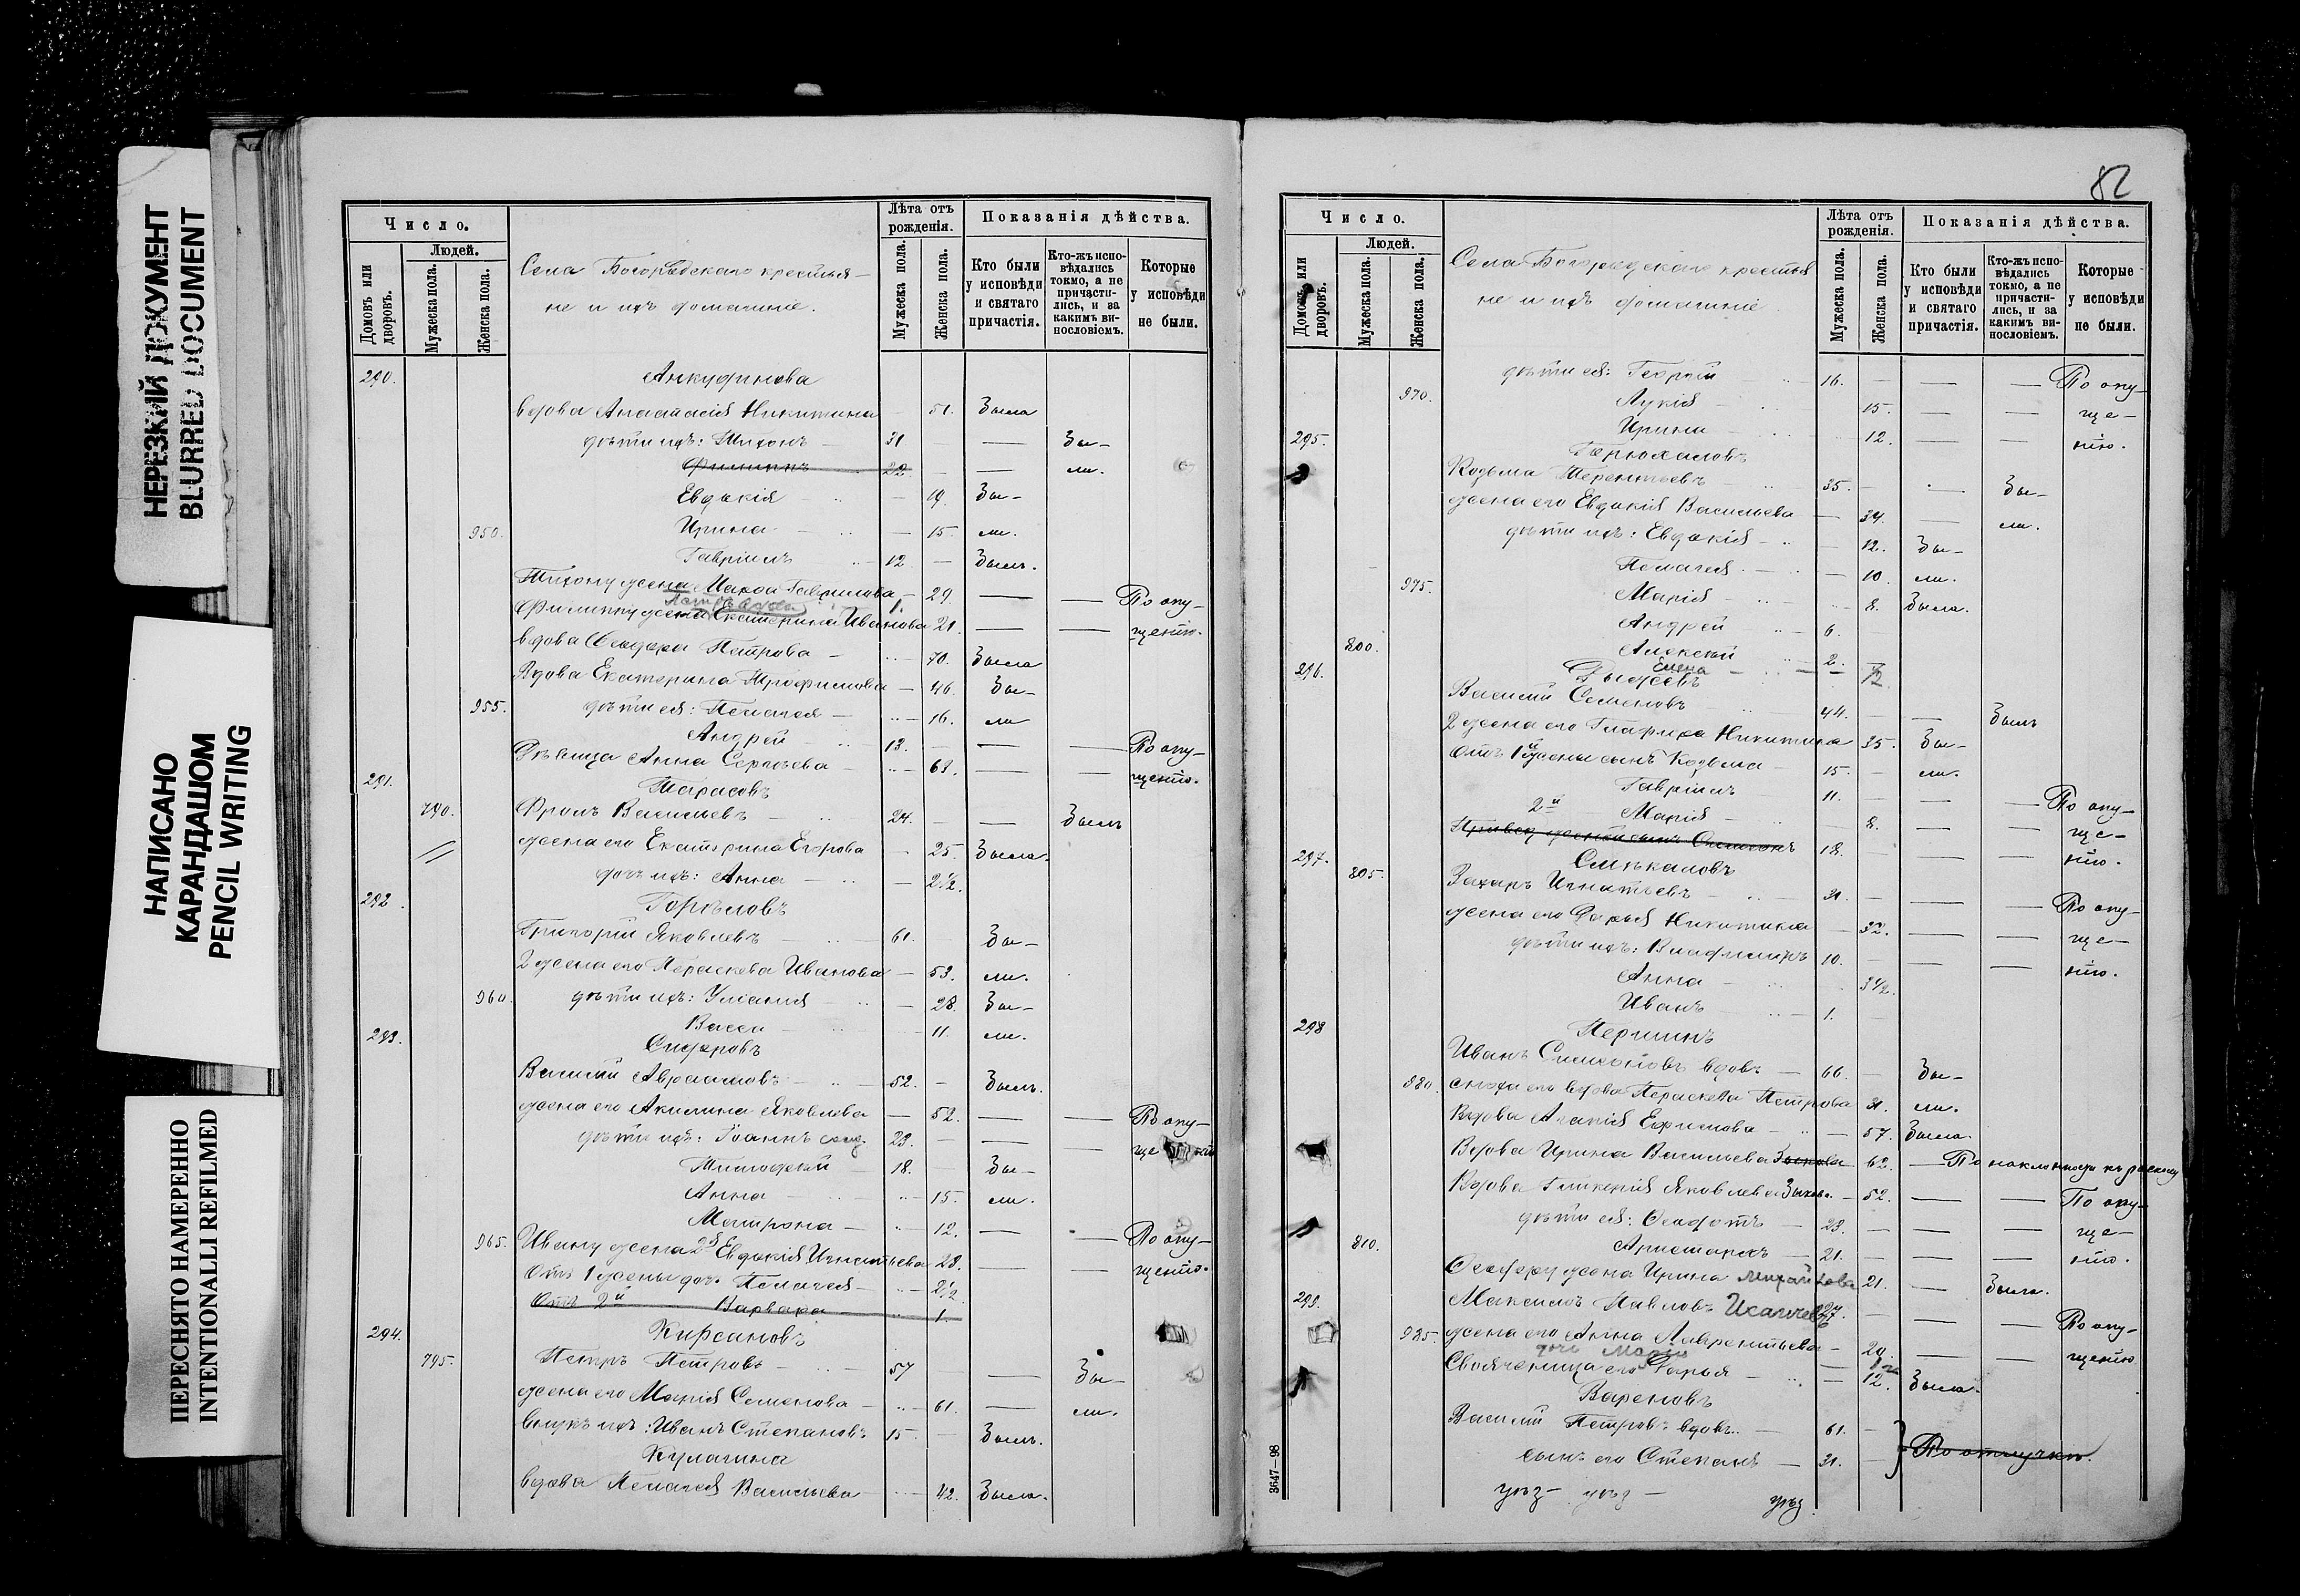 НЕРЕЗКИЙ ДОКУМЕНТ
BLURRED DOCUMENT
НАПИСАНО
КАРАНДАШОМ
PENCIL WRITING
ПЕРЕСНЯТО НАМЕРЕННО
INTENTIONALLI REFILMED
Число.
Людей.
Домовъ или дворовъ.
Мужеска пола.
Женска пола.
Села Богородскаго крестья-
не и ихъ домашніе.
Лѣта отъ рожденія.
Мужеска пола.
Женска пола.
Показанія дѣйства.
Кто были у исповѣди и святаго причастія.
Кто-жъ исповѣдались токмо, а не причастились, и за какимъ винословіемъ.
Которые у исповѣди не были.
290. Анкудинова
вдова Анастасія Никитина 51. Была
дѣти ихъ: Тихонъ 31 Бы-
Филиппъ 22 ли.
Евдокія 19. Бы-
950. Ирина 15 ли.
Гавріилъ 12 Былъ.
Тихону жена Марѳа Гаврилова 29. По опу-
Филиппу жена Екатерина Иванова 21. щенію.
вдова Петрова 70. Была
Вдова Екатерина Трофимова 46. Бы-
955. дѣти ея: Пелагея 16. ли
Андрей 13. По опу-
Дѣвица Анна Сергѣева 63. щенію.
291. Тарасовъ
790. Фролъ Васильевъ 24. Былъ
жена его Екатерина Егорова 25. Была.
дочь ихъ: Анна 2 1/2.
292. Горѣловъ
Григорій Яковлевъ 61. Бы-
2 жена его Параскева Иванова 53. ли.
960. дѣти ихъ: Уліанія 28. Бы-
Васса 11. ли.
293. Сидоровъ
Василій Авраамовъ 52. Былъ.
жена его Акилина Яковлева 52. По опу-
дѣти ихъ: Іоаннъ 23.
Тимофей 18. Бы-
Анна 15. ли.
Матрона 12. По опу-
965. Ивану жена 2я Евдокія Игнатьева 23. щенію.
Отъ 1 жены дочь Пелагея 2 1/2
Отъ 2й Варвара 1.
294. Кирсановъ
795. Петръ Петровъ 57 Бы-
жена его Марія Семенова 61. ли.
внукъ ихъ: Иванъ Степановъ 15. Былъ.
Кулагина
вдова Пелагея Васильева 42. Была.
82
Число.
Людей.
Домовъ или дворовъ.
Мужеска пола.
Женска пола.
Села Богородскаго крестья
не и ихъ домашніе
Лѣта отъ рожденія.
Мужеска пола.
Женска пола.
Показанія дѣйства.
Кто были у исповѣди и святаго причастія.
Кто-жъ исповѣдались токмо, а не причастились, и за какимъ винословіемъ.
Которые у исповѣди не были.
дѣти ея: Георгій 16. По опу-
970. Лукія 15. ще-
Ирина 12. нію.
295.
Козьма Терентьевъ 35. Бы-
жена его Евдокія Васильева 34. ли.
дѣти ихъ: Евдокія 12. Бы-
Пелагея 10. ли.
975. Марія 8. Была.
Андрей 6.
800. Алексѣй 2.
Елена 1/2
296. Рыжевъ
Василій Семеновъ 44. Былъ
2 жена его Гликерія Никитина 35. Бы-
Отъ 1й жены сынъ Козьма 15. ли.
Гавріилъ 11. По опу-
2й Марія 8. ще-
18. нію.
297. Синькаловъ
805. Захаръ Игнатьевъ 31. По опу-
жена его Дарья Никитина 32. ще-
дѣти ихъ: Владиміръ 10. нію.
Анна 3 1/2.
Иванъ 1.
298 Першинъ
Иванъ Симеоновъ вдовъ 66. Бы-
980 сноха его вдова Параскева Петрова 31. ли.
Вдова Агапія Ефимова 57. Была.
Вдова Ирина Васильева Зыкова 62. По наклонности къ расколу
Вдова Гликерія Яковлева Зыкова. 52. По опу-
дѣти ея: Ѳеодотъ 23. ще-
810. Аристархъ 21. нію.
Ѳеодору жена Ирина Михайлова 21. Была.
299. Максимъ Павловъ 27. По опу-
985. жена его Анна Лаврентьева 20. щенію
дочь Марія
Свояченица его Дарья 12. Была.
Вареновъ
Василій Петровъ вдовъ. 61.
По отлучкѣ.
сынъ его Степанъ 31.
3647—98